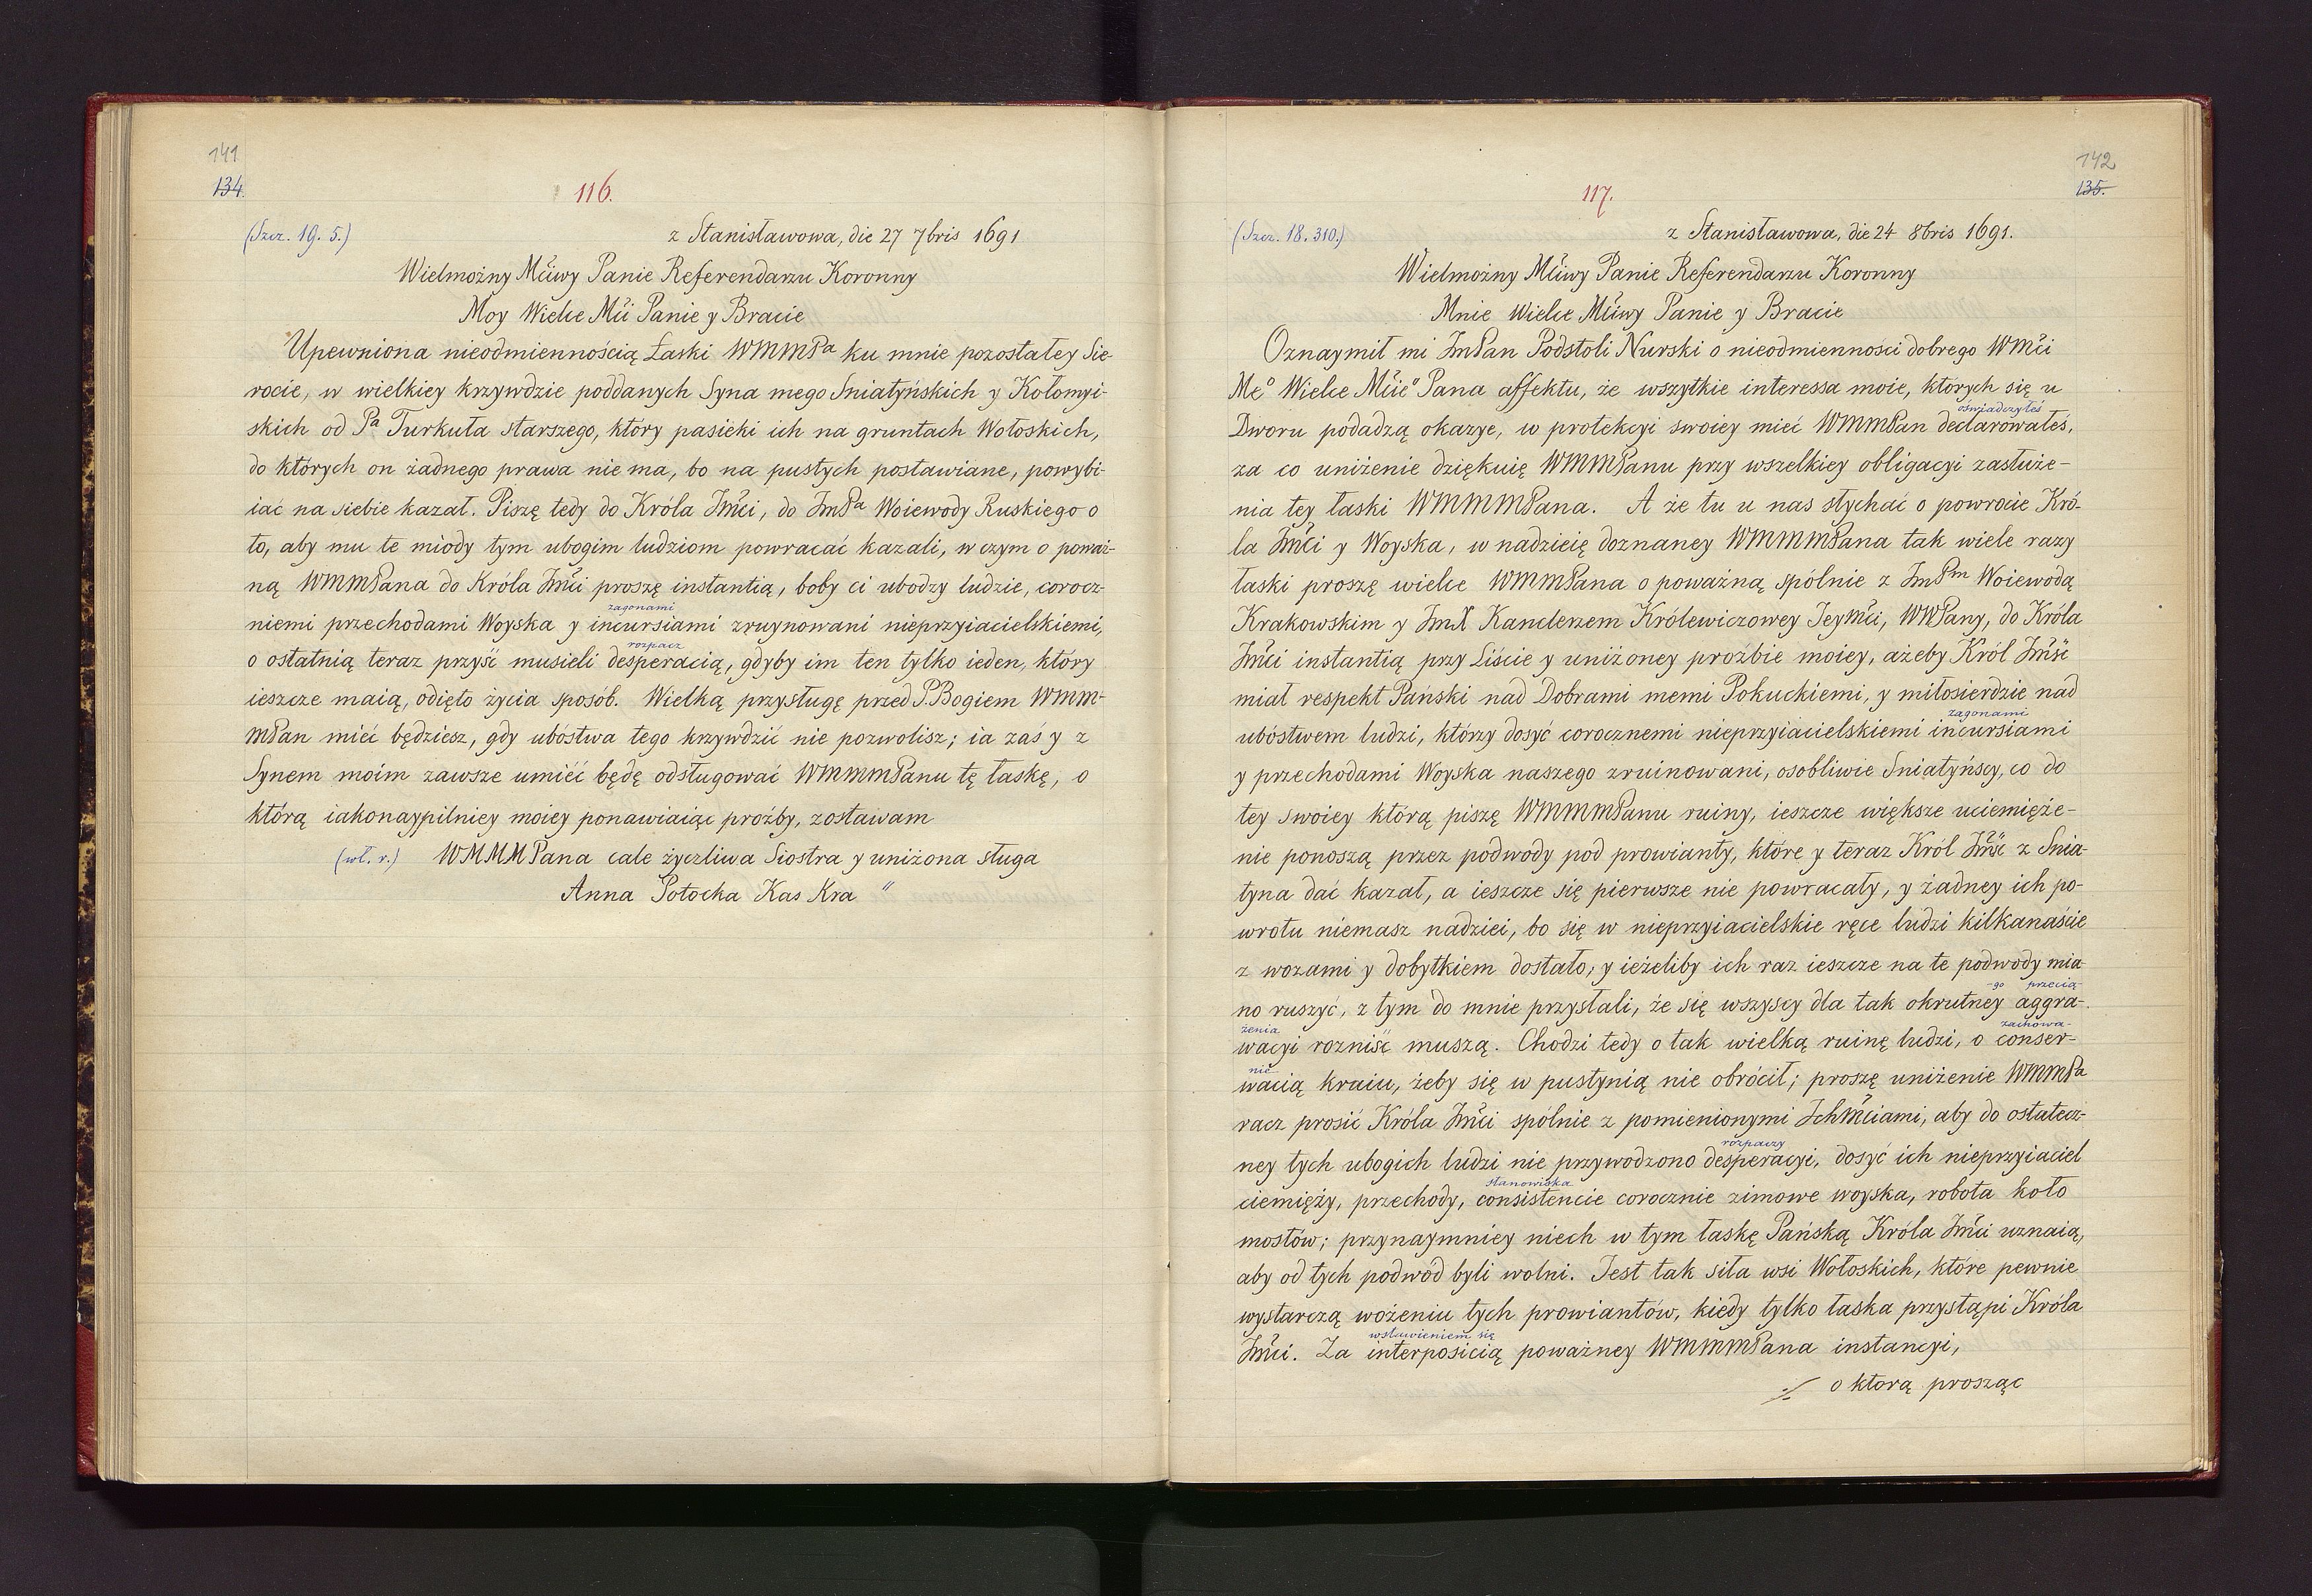 141
134.
116.
(Szcz. 19. 5.) z Stanisławowa, die 27 7bris 1691
Wielmożny Mćiwy Panie Referendarzu Koronny
Moy Wielce Mći Panie y Bracie
Upewniona nieodmiennością Łaski WMMPa ku mnie pozostałey Sie-
rocie, w wielkiey krzywdzie poddanych Syna mego Sniatyńskich y Kołomyi-
skich od Pa Turkuła starszego, który pasieki ich na gruntach Wołoskich,
do których on żadnego prawa nie ma, bo na pustych postawiane, powybi-
iać na siebie kazał. Piszę tedy do Króla Jmći, do JmPa Woiewody Ruskiego o
to, aby mu te miody tym ubogim ludziom powracać kazali, w czym o poważ-
ną WMMPana do Króla Jmći proszę instantią, boby ci ubodzy ludzie, corocz-
zagonami
niemi przechodami Woyska y incursiami zruynowani nieprzyiacielskiemi,
rozpacz
o ostatnią teraz przyść musieli desperacią, gdyby im ten tylko ieden, który
ieszcze maią, odięto życia sposób. Wielką przysługę przed P. Bogiem WMM-
MPan mieć będziesz, gdy ubóstwa tego krzywdzić nie pozwolisz; ia zaś y z
Synem moim zawsze umieć będę odsługować WMMMPanu tę łaskę, o
którą iakonaypilniey moiey ponawiaiąc proźby, zostawam
(wł. r.) WMMMPana cale życzliwa Siostra y uniżona sługa
Anna Potocka Kas Kra "
142
135.
117.
(Szcz. 18. 310.) z Stanisławowa, die 24 8bris 1691.
Wielmożny Mćiwy Panie Referendarzu Koronny
Mnie Wielce Mćiwy Panie y Bracie
Oznaymił mi JmPan Podstoli Nurski o nieodmienności dobrego WMći
Meo Wielce Mćieo Pana affektu, że wszytkie interessa moie, których się u
oświadczyłeś
Dworu podadzą okazye, w protekcyi swoiey mieć WMMPan declarowałeś,
za co uniżenie dziękuię WMMPanu przy wszelkiey obligacyi zasłuże-
nia tey łaski WMMMPana. A że tu u nas słychać o powrocie Kró-
la Jmći y Woyska, w nadzieię doznaney WMMMPana tak wiele razy
łaski proszę wielce WMMPana o poważną spólnie z JmPm Woiewodą
Krakowskim y JmX Kanclerzem Królewiczowey Jeymći, WWPany, do Króla
Jmći instantią przy Liście y uniżoney proźbie moiey, ażeby Król Jmść
miał respekt Pański nad Dobrami memi Pokuckiemi, y miłosierdzie nad
zagonami
ubóstwem ludzi, którzy dosyć corocznemi nieprzyiacielskiemi incursiami
y przechodami Woyska naszego zruinowani, osobliwie Sniatyńscy, co do
tey swoiey którą piszę WMMMPanu ruiny, ieszcze większe uciemięże-
nie ponoszą przez podwody pod prowianty, które y teraz Król Jmść z Snia-
tyna dać kazał, a ieszcze się pierwsze nie powracały, y żadney ich po-
wrotu niemasz nadziei, bo się w nieprzyiacielskie ręce ludzi kilkanaście
z wozami y dobytkiem dostało, y ieżeliby ich raz ieszcze na te podwody mia-
-go przecią-
no ruszyć, z tym do mnie przysłali, że się wszyscy dla tak okrutney aggra-
żenia zachowa-
wacyi rozniść muszą. Chodzi tedy o tak wielką ruinę ludzi, o conser-
nie
wacią kraiu, żeby się w pustynią nie obrócił; proszę uniżenie WMMPa
racz prosić Króla Jmći spólnie z pomienionymi Ichmściami, aby do ostatecz-
rozpaczy
ney tych ubogich ludzi nie przywodzono desperacyi, dosyć ich nieprzyiaciel
stanowiska
ciemięży, przechody, consistencie corocznie zimowe woyska, robota koło
mostów; przynaymniey niech w tym łaskę Pańską Króla Jmći uznaią,
aby od tych podwód byli wolni. Jest tak siła wsi Wołoskich, które pewnie
wystarczą wożeniu tych prowiantów, kiedy tylko łaska przystąpi Króla
wstawieniem się
Jmći. Za interposicią poważney WMMMPana instancyi,
./. o którą prosząc